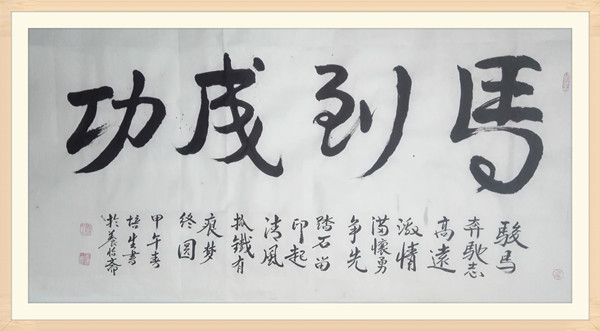 馬到成功
駿馬
奔馳志
高遠
激情
滿懷勇
爭先
踏石留
印起
清風
抓鐵有
痕夢
终圆
甲午春
培生書
於養性斋